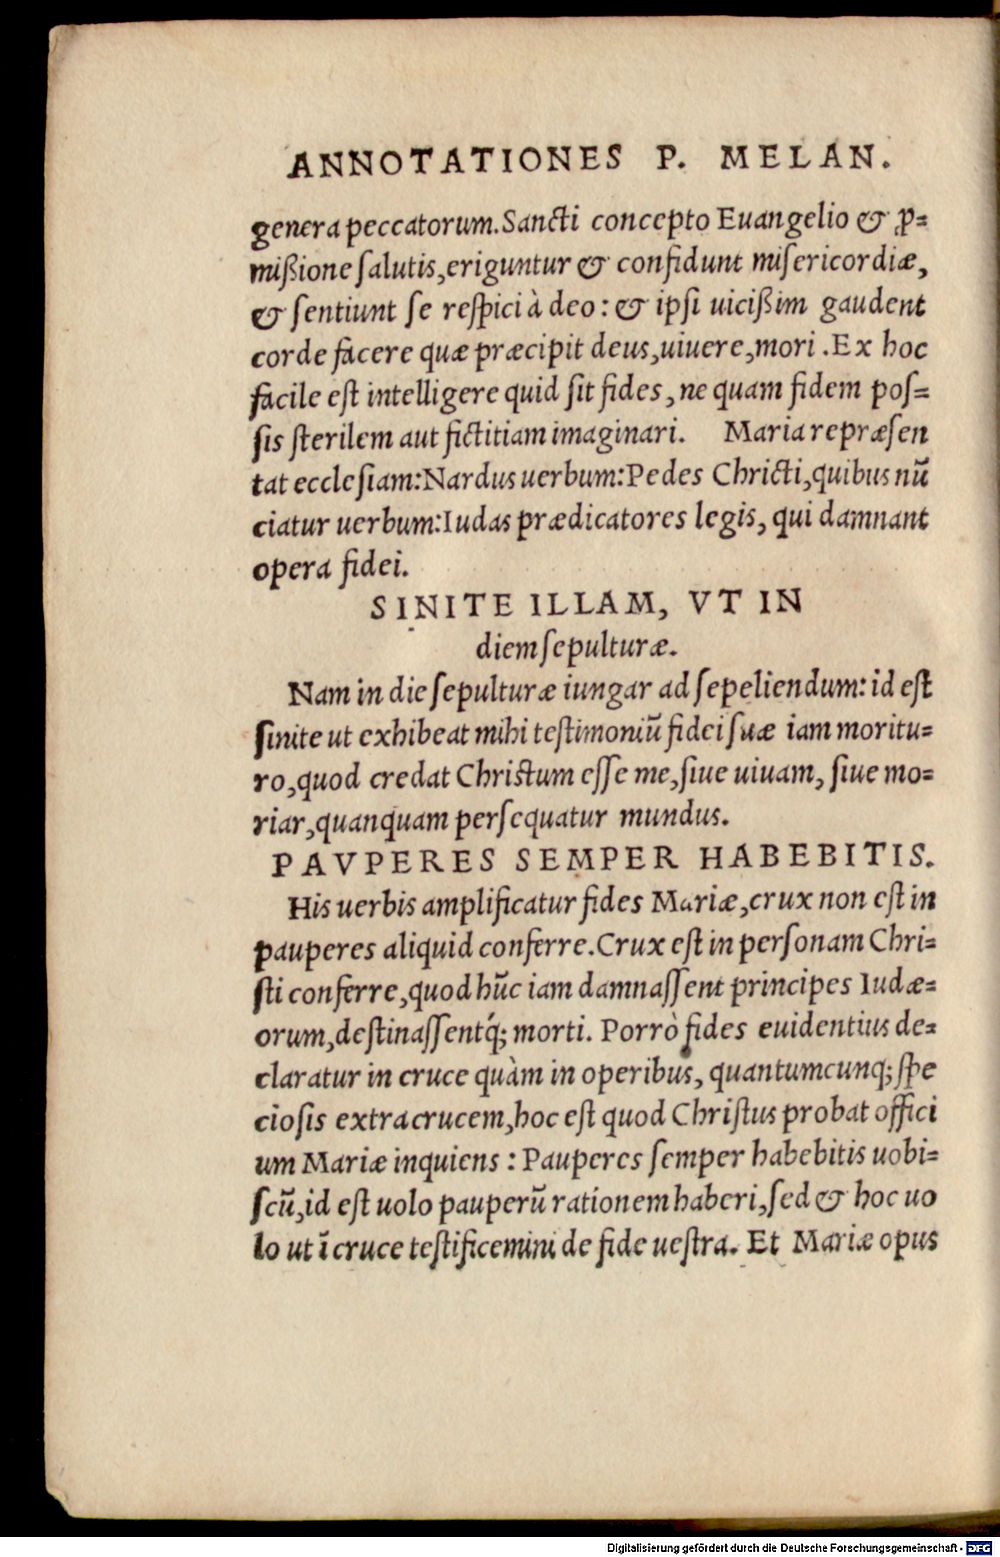 ANNOTATIONES P. MELAN.
genera peccatorum. Sancti concepto Euangelio & ꝓ=
mißione ſalutis, eriguntur & confidunt miſericordiæ,
& ſentiunt ſe reſpici à deo: & ipſi uicißim gaudent
corde facere quæ præcipit deus, uiuere, mori. Ex hoc
facile eſt intelligere quid ſit fides, ne quam fidem poſ=
ſis ſterilem aut fictitiam imaginari. Maria repræſen
tat eccleſiam: Nardus uerbum: Pedes Chricti, quibus nũ
ciatur uerbum: Iudas prædicatores legis, qui damnant
opera fidei.
SINITE ILLAM, VT IN
diem ſepulturæ.
Nam in die ſepulturæ iungar ad ſepeliendum: id eſt
ſinite ut exhibeat mihi teſtimoniũ fidei ſuæ iam moritu=
ro, quod credat Chriſtum eſſe me, ſiue uiuam, ſiue mo=
riar, quanquam perſequatur mundus.
PAVPERES SEMPER HABEBITIS.
His uerbis amplificatur fides Mariæ, crux non eſt in
pauperes aliquid conferre. Crux eſt in perſonam Chri=
ſti conferre, quod hũc iam damnaſſent principes Iudæ=
orum, deſtinaſſentq́; morti. Porrò fides euidentius de=
claratur in cruce quàm in operibus, quantumcunq; ſpe
cioſis extra crucem, hoc eſt quod Chriſtus probat offici
um Mariæ inquiens: Pauperes ſemper habebitis uobi=
ſcũ, id eſt uolo pauperũ rationem haberi, ſed & hoc uo
lo ut ĩ cruce teſtificemini de fide ueſtra. Et Mariæ opus
Digitalisierung gefördert durch die Deutsche Forschungsgemeinschaft - DFG